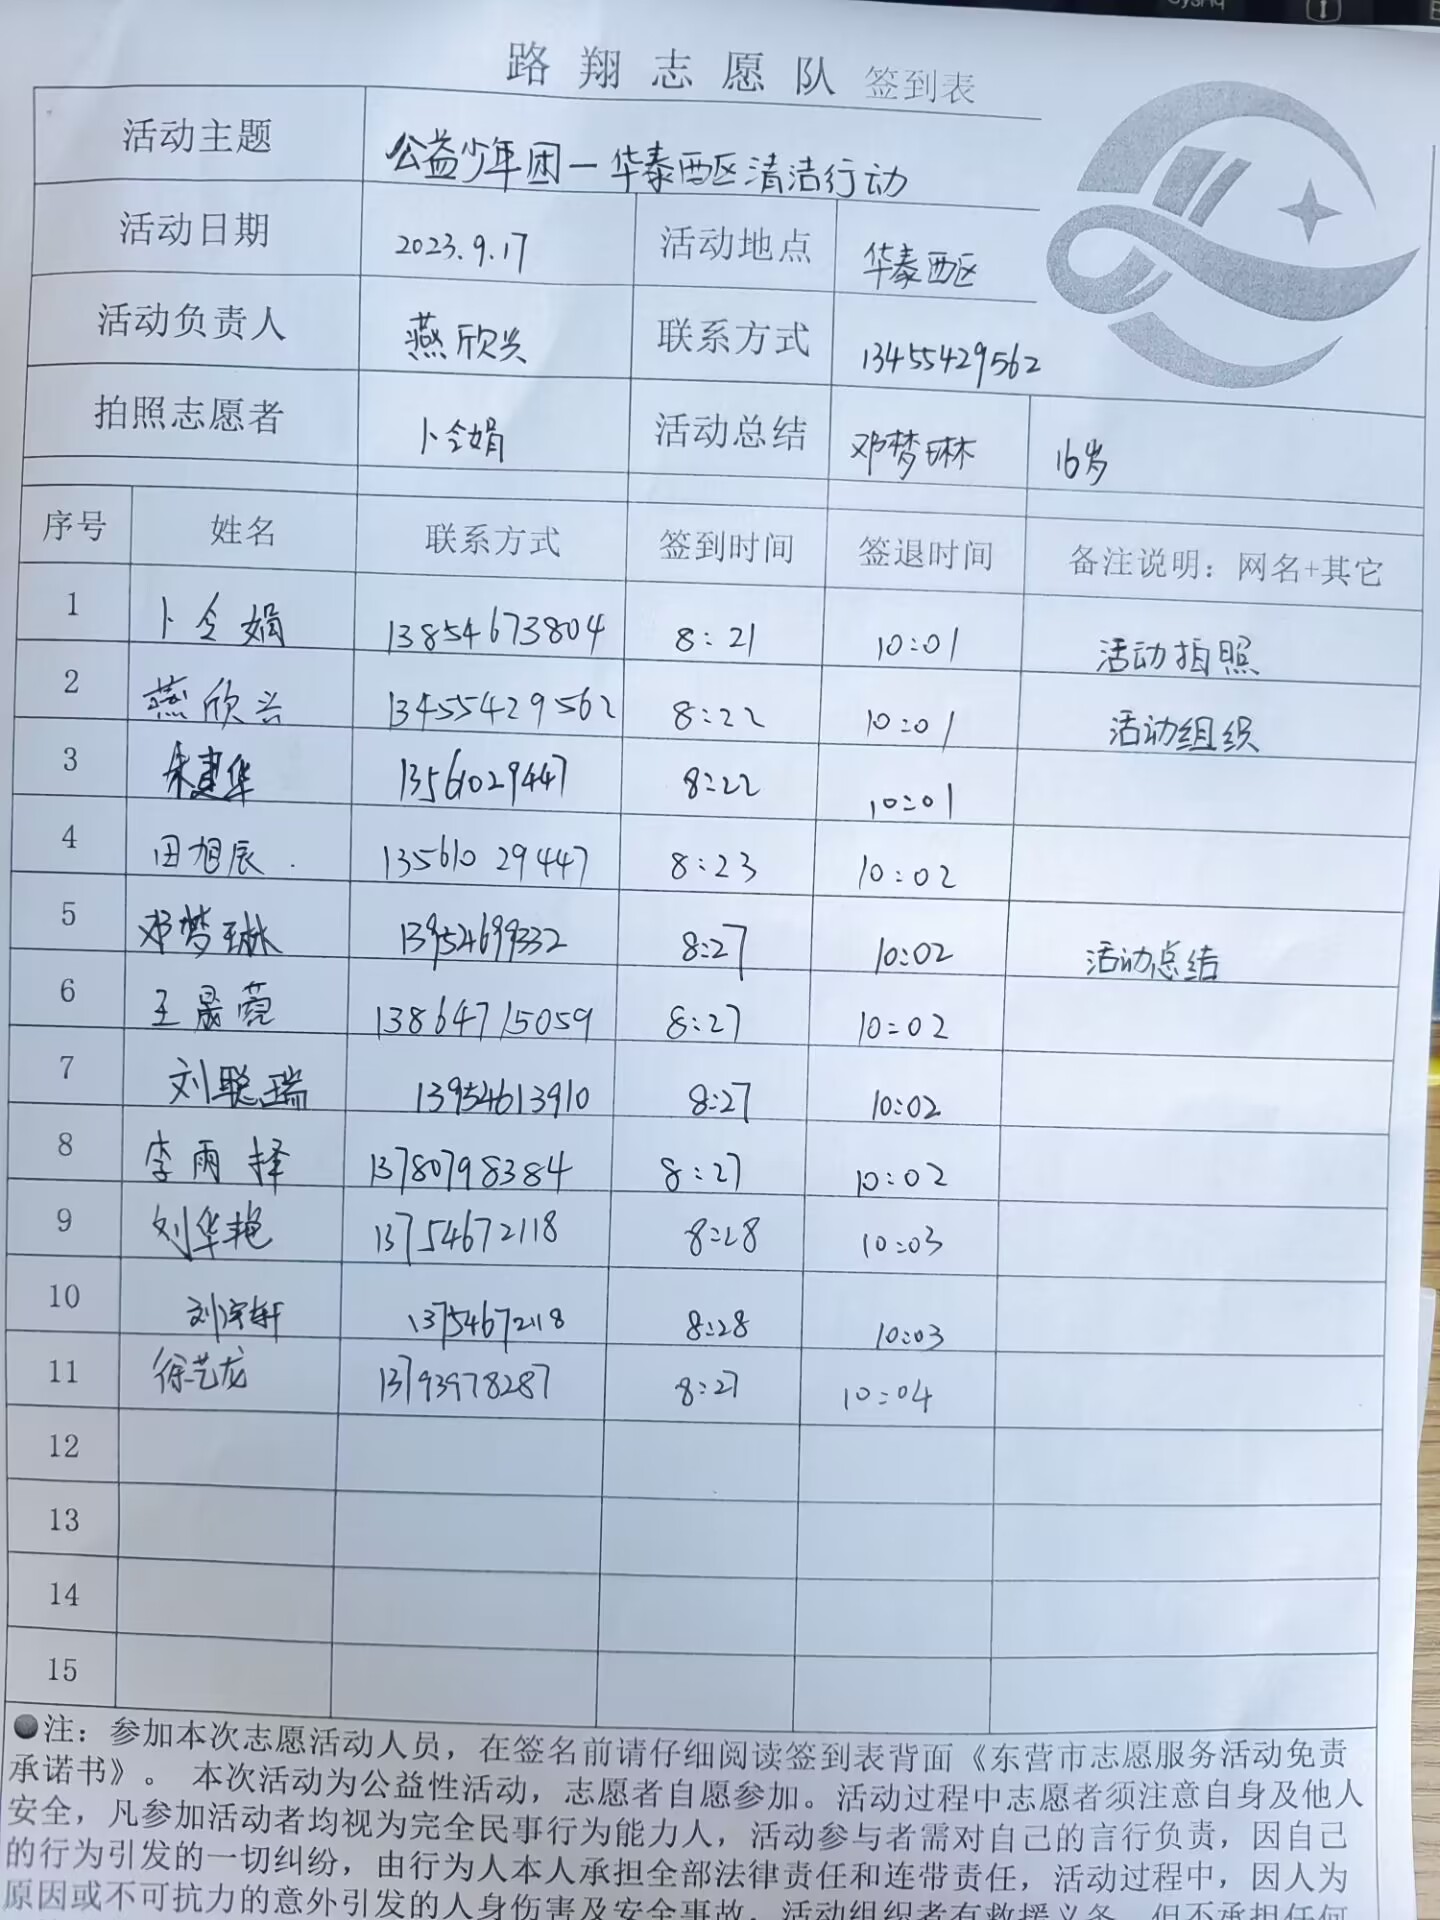 路翔志愿队 签到表
活动主题 公益少年团—华泰西区清洁行动
活动日期 2023.9.17 活动地点 华泰西区
活动负责人 燕欣兴 联系方式 13455429562
拍照志愿者 卜令娟 活动总结 邓梦琳 16岁
序号 姓名 联系方式 签到时间 签退时间 备注说明：网名+其它
1 卜令娟 13854673804 8:21 10:01 活动拍照
2 燕欣兴 13455429562 8:22 10:01 活动组织
3 朱建华 13561029447 8:22 10:01
4 田旭辰 13561029447 8:23 10:02
5 邓梦琳 13954699332 8:27 10:02 活动总结
6 王晟霓 13864715059 8:27 10:02
7 刘聪瑞 13954613910 8:27 10:02
8 李雨择 13780798384 8:27 10:02
9 刘华艳 13754672118 8:28 10:03
10 刘宇轩 13754672118 8:28 10:03
11 徐艺龙 13793978287 8:27 10:04
12
13
14
15
●注：参加本次志愿活动人员，在签名前请仔细阅读签到表背面《东营市志愿服务活动免责
承诺书》。 本次活动为公益性活动，志愿者自愿参加。活动过程中志愿者须注意自身及他人
安全，凡参加活动者均视为完全民事行为能力人，活动参与者需对自己的言行负责，因自己
的行为引发的一切纠纷，由行为人本人承担全部法律责任和连带责任，活动过程中，因人为
原因或不可抗力的意外引发的人身伤害及安全事故，活动组织者有救援义务，但不承担任何